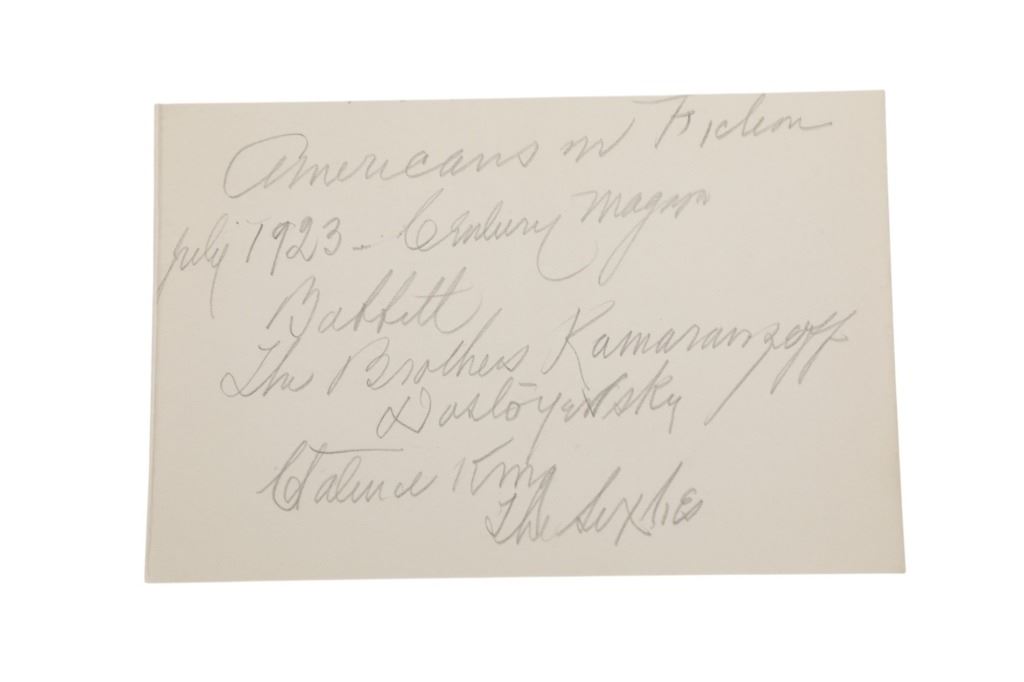 Americans in Fiction
July 1923 - Century Magazn
Babbitt
The Brothers Kamaranzoff
Dostoyevsky
Clarence King
The Sixties